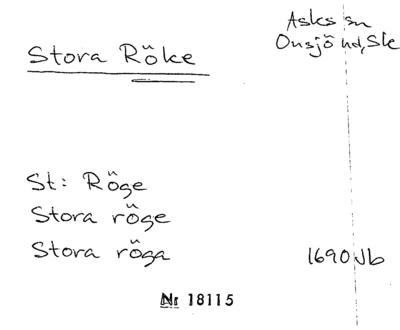 Stora Röke
Asks sn
Onsjö hd, Sk
St: Röge
Stora röge
Stora röga
1690 Jb
Nr 18115